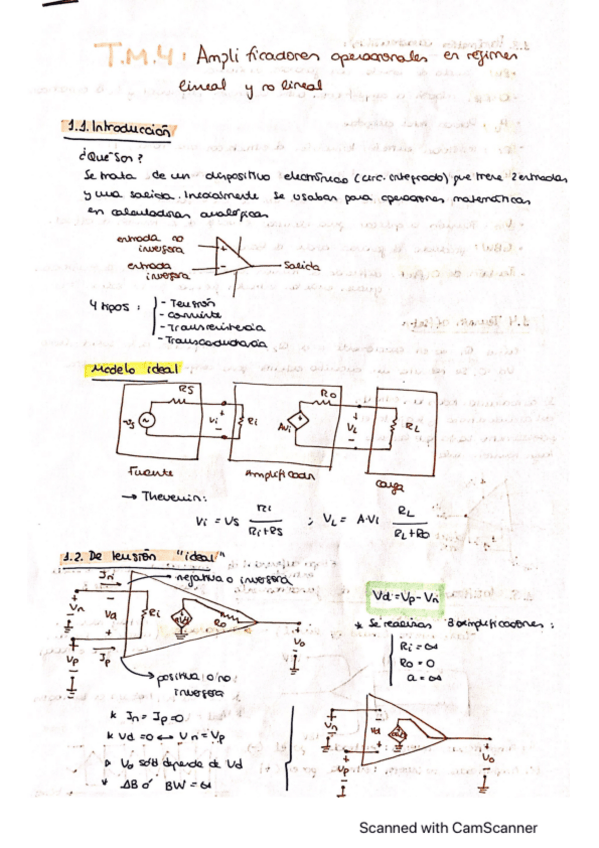 T.M.4: Amplificadores operacionales en régimen
lineal y no lineal
1.1. Introducción
¿Qué son?
Se trata de un dispositivo electrónico (circ. integrado) que tiene 2 entradas
y una salida. Inicialmente se usaban para operaciones matemáticas
en calculadoras analógicas
entrada no
inversora
entrada
inversora
+
-
Salida
4 tipos:
- Tensión
- corriente
- Transresistencia
- Transconductancia
Modelo ideal
RS
Vs
+
Vi
-
Ri
Ro
AVi
+
VL
-
RL
Fuente
Amplificador
carga
→ Thevenin:
Vi = VS Ri / Ri+RS ; VL = A·Vi RL / RL+RO
1.2. De tensión "ideal"
In
→ negativa o inversora
Vn
Vd
Ri
Ro
Vo
Vp
Ip
→ positiva o no
inversora
Vd = Vp - Vn
* Se realizan 3 simplificaciones:
Ri = ∞
Ro = 0
a = ∞
* In = Ip = 0
* Vd = 0 ↔ Vn = Vp
Vo solo depende de Vd
* ΔB ó BW = ∞
Vn
Vd
Vp
Vo
Scanned with CamScanner